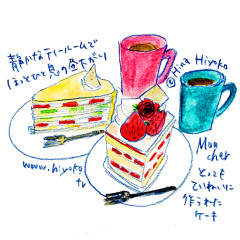 静かなティールームで
ほっとひと息の昼下がり
©Hina Hiyoko
www.hiyoko.tv
Mon
cher
とっても
ていねいに
作られた
ケーキ